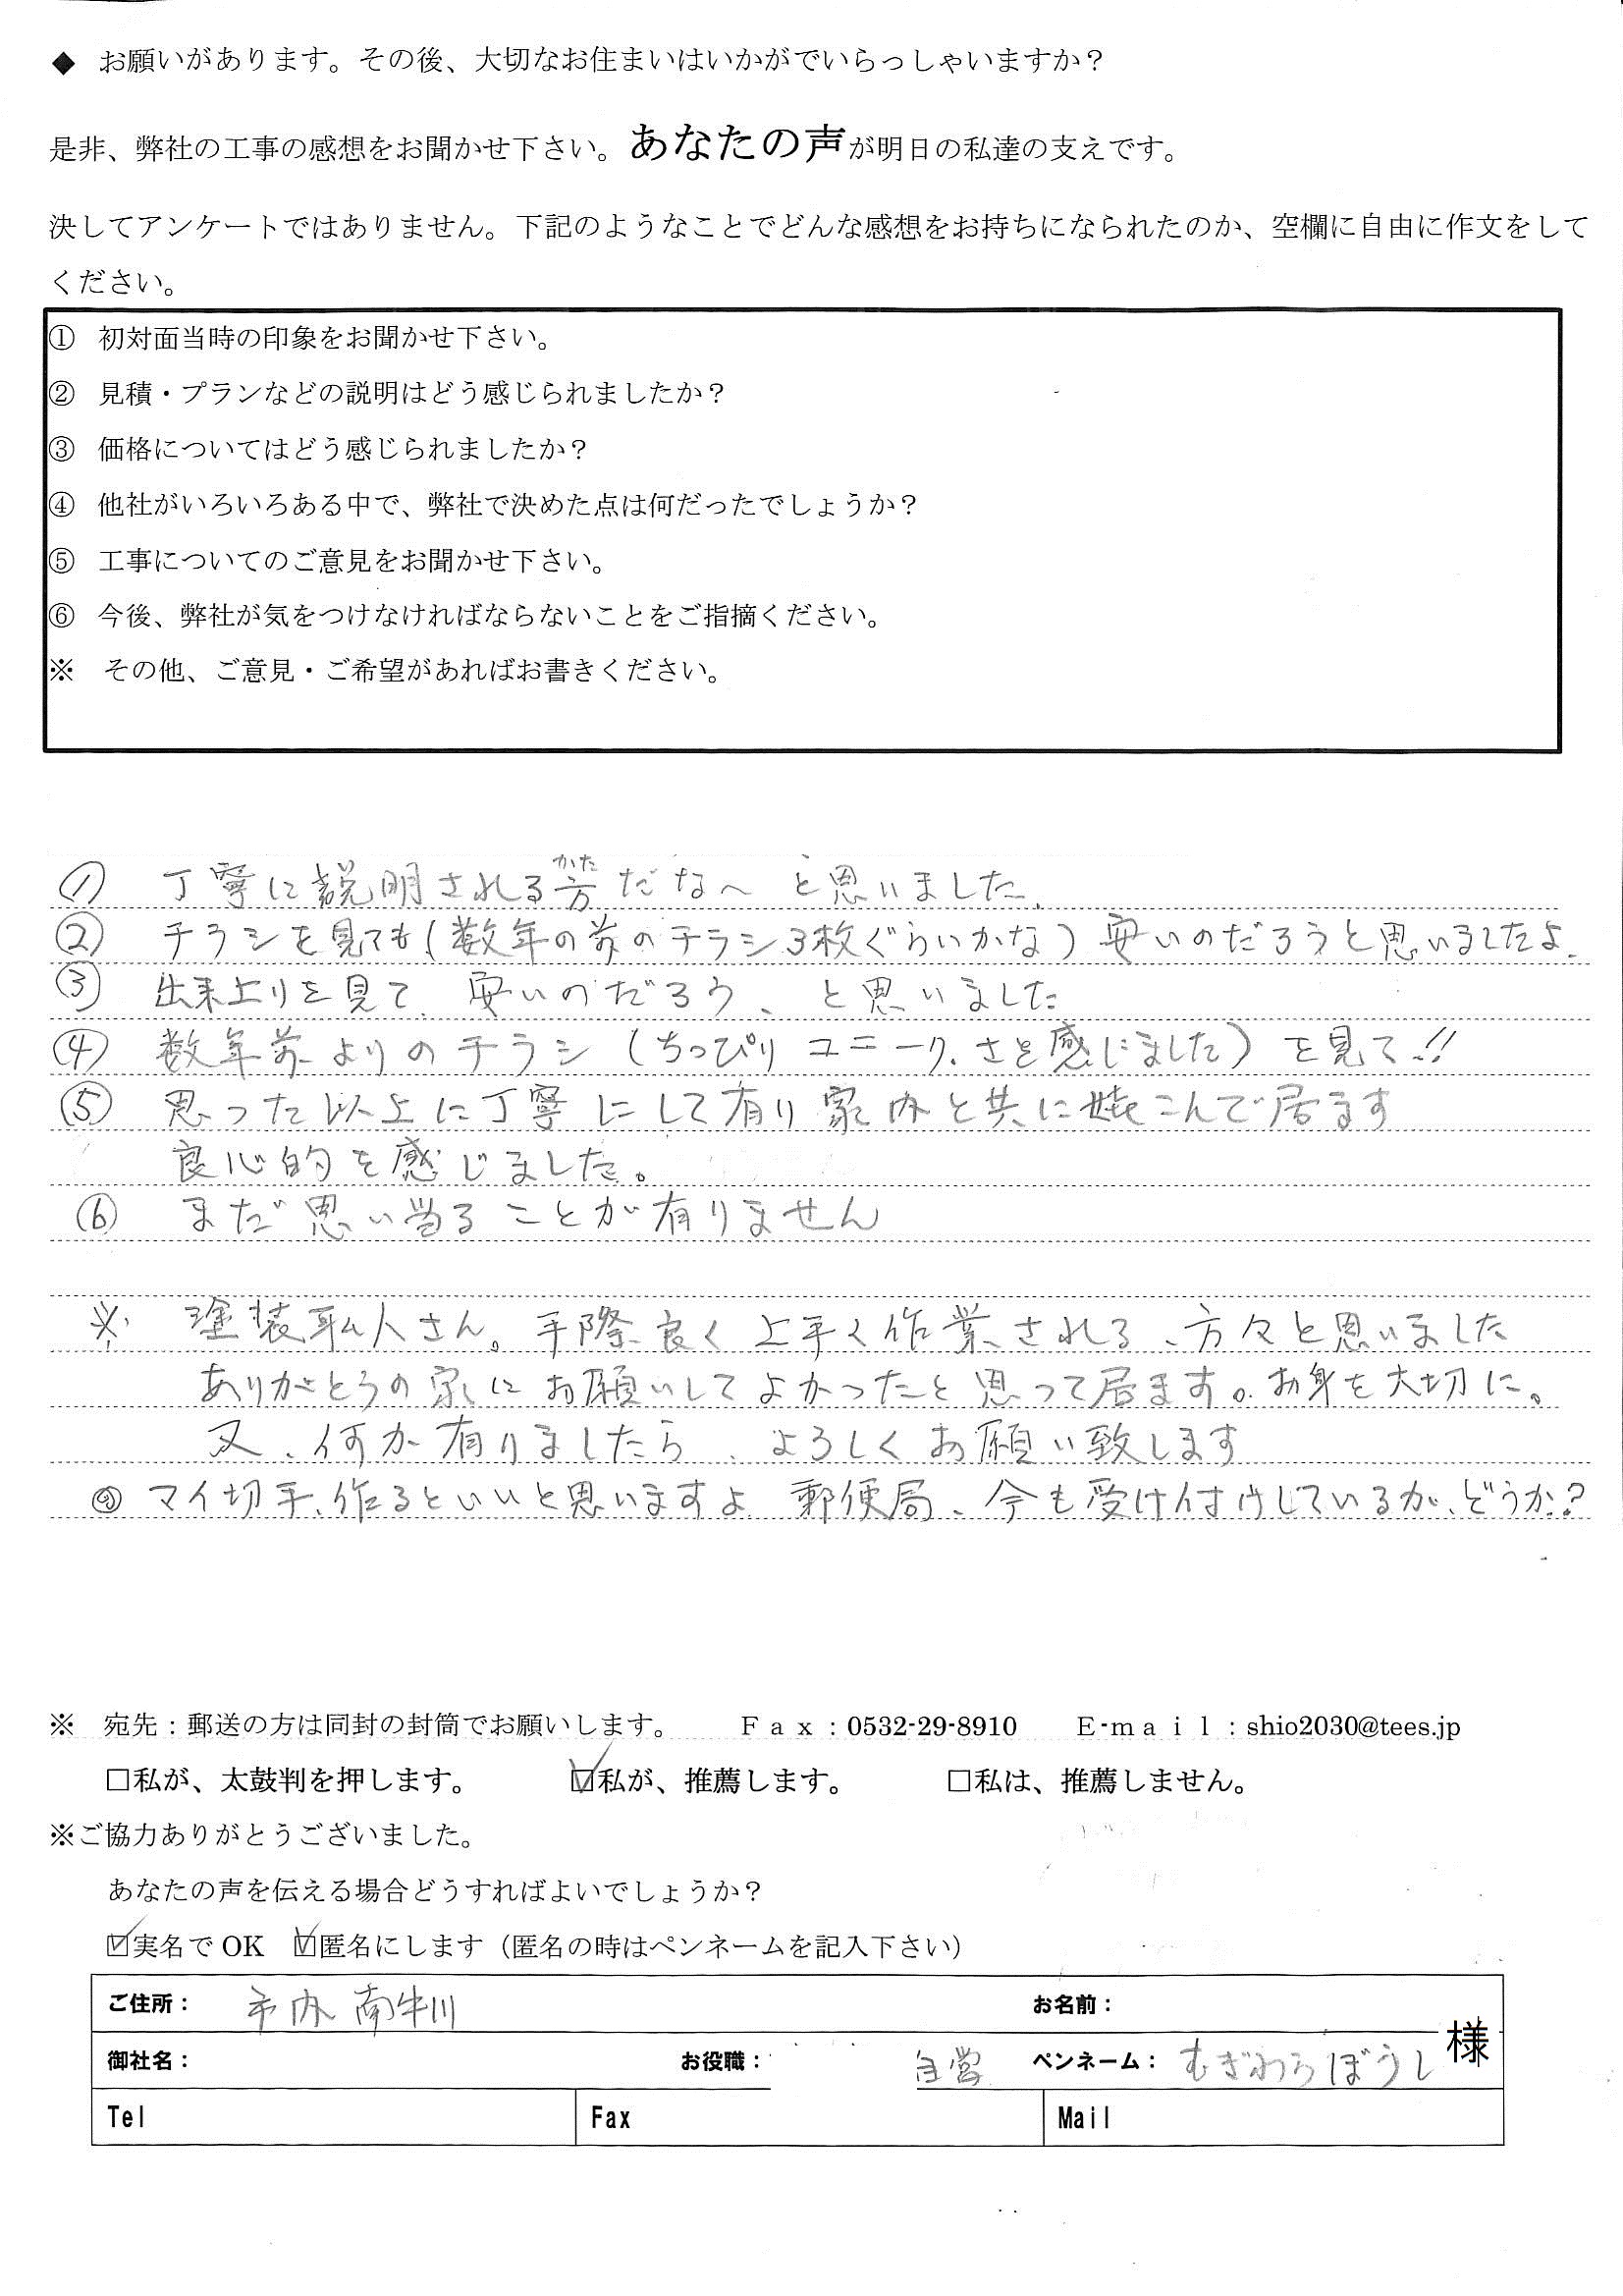 ◆ お願いがあります。その後、大切なお住まいはいかがでいらっしゃいますか？
是非、弊社の工事の感想をお聞かせ下さい。あなたの声が明日の私達の支えです。
決してアンケートではありません。下記のようなことでどんな感想をお持ちになられたのか、空欄に自由に作文をして
ください。
① 初対面当時の印象をお聞かせ下さい。
② 見積・プランなどの説明はどう感じられましたか？
③ 価格についてはどう感じられましたか？
④ 他社がいろいろある中で、弊社で決めた点は何だったでしょうか？
⑤ 工事についてのご意見をお聞かせ下さい。
⑥ 今後、弊社が気をつけなければならないことをご指摘ください。
※ その他、ご意見・ご希望があればお書きください。
かた
① 丁寧に説明される方だな〜 と思いました。
② チラシを見ても(数年の前のチラシ3枚ぐらいかな) 安いのだろうと思いましたよ.
③ 出来上りを見て、安いのだろう、と思いました
④ 数年前よりのチラシ (ちっぴり ユニーク.さを感じました) を見て!!
⑤ 思った以上に丁寧にして有り 家内と共に喜こんで居ます
良心的を感じました。
⑥ まだ思い当ることが有りません
※ 塗装職人さん。手際良く上手く作業される、方々と思いました
ありがとうの家に お願いしてよかったと思って居ます。お身を大切に。
又、何か有りましたら、よろしくお願い致します
マイ切手、作るといいと思いますよ 郵便局、今も受け付けしているか、どうか?
※ 宛先：郵送の方は同封の封筒でお願いします。 Ｆａｘ：0532-29-8910 Ｅ-ｍａｉｌ：shio2030@tees.jp
□私が、太鼓判を押します。 ☑私が、推薦します。 □私は、推薦しません。
※ご協力ありがとうございました。
あなたの声を伝える場合どうすればよいでしょうか？
☑実名で OK ☑匿名にします（匿名の時はペンネームを記入下さい）
ご住所： 市内 南牛川 お名前：
御社名： お役職： 自営 ペンネーム： むぎわらぼうし 様
Tel Fax Mail